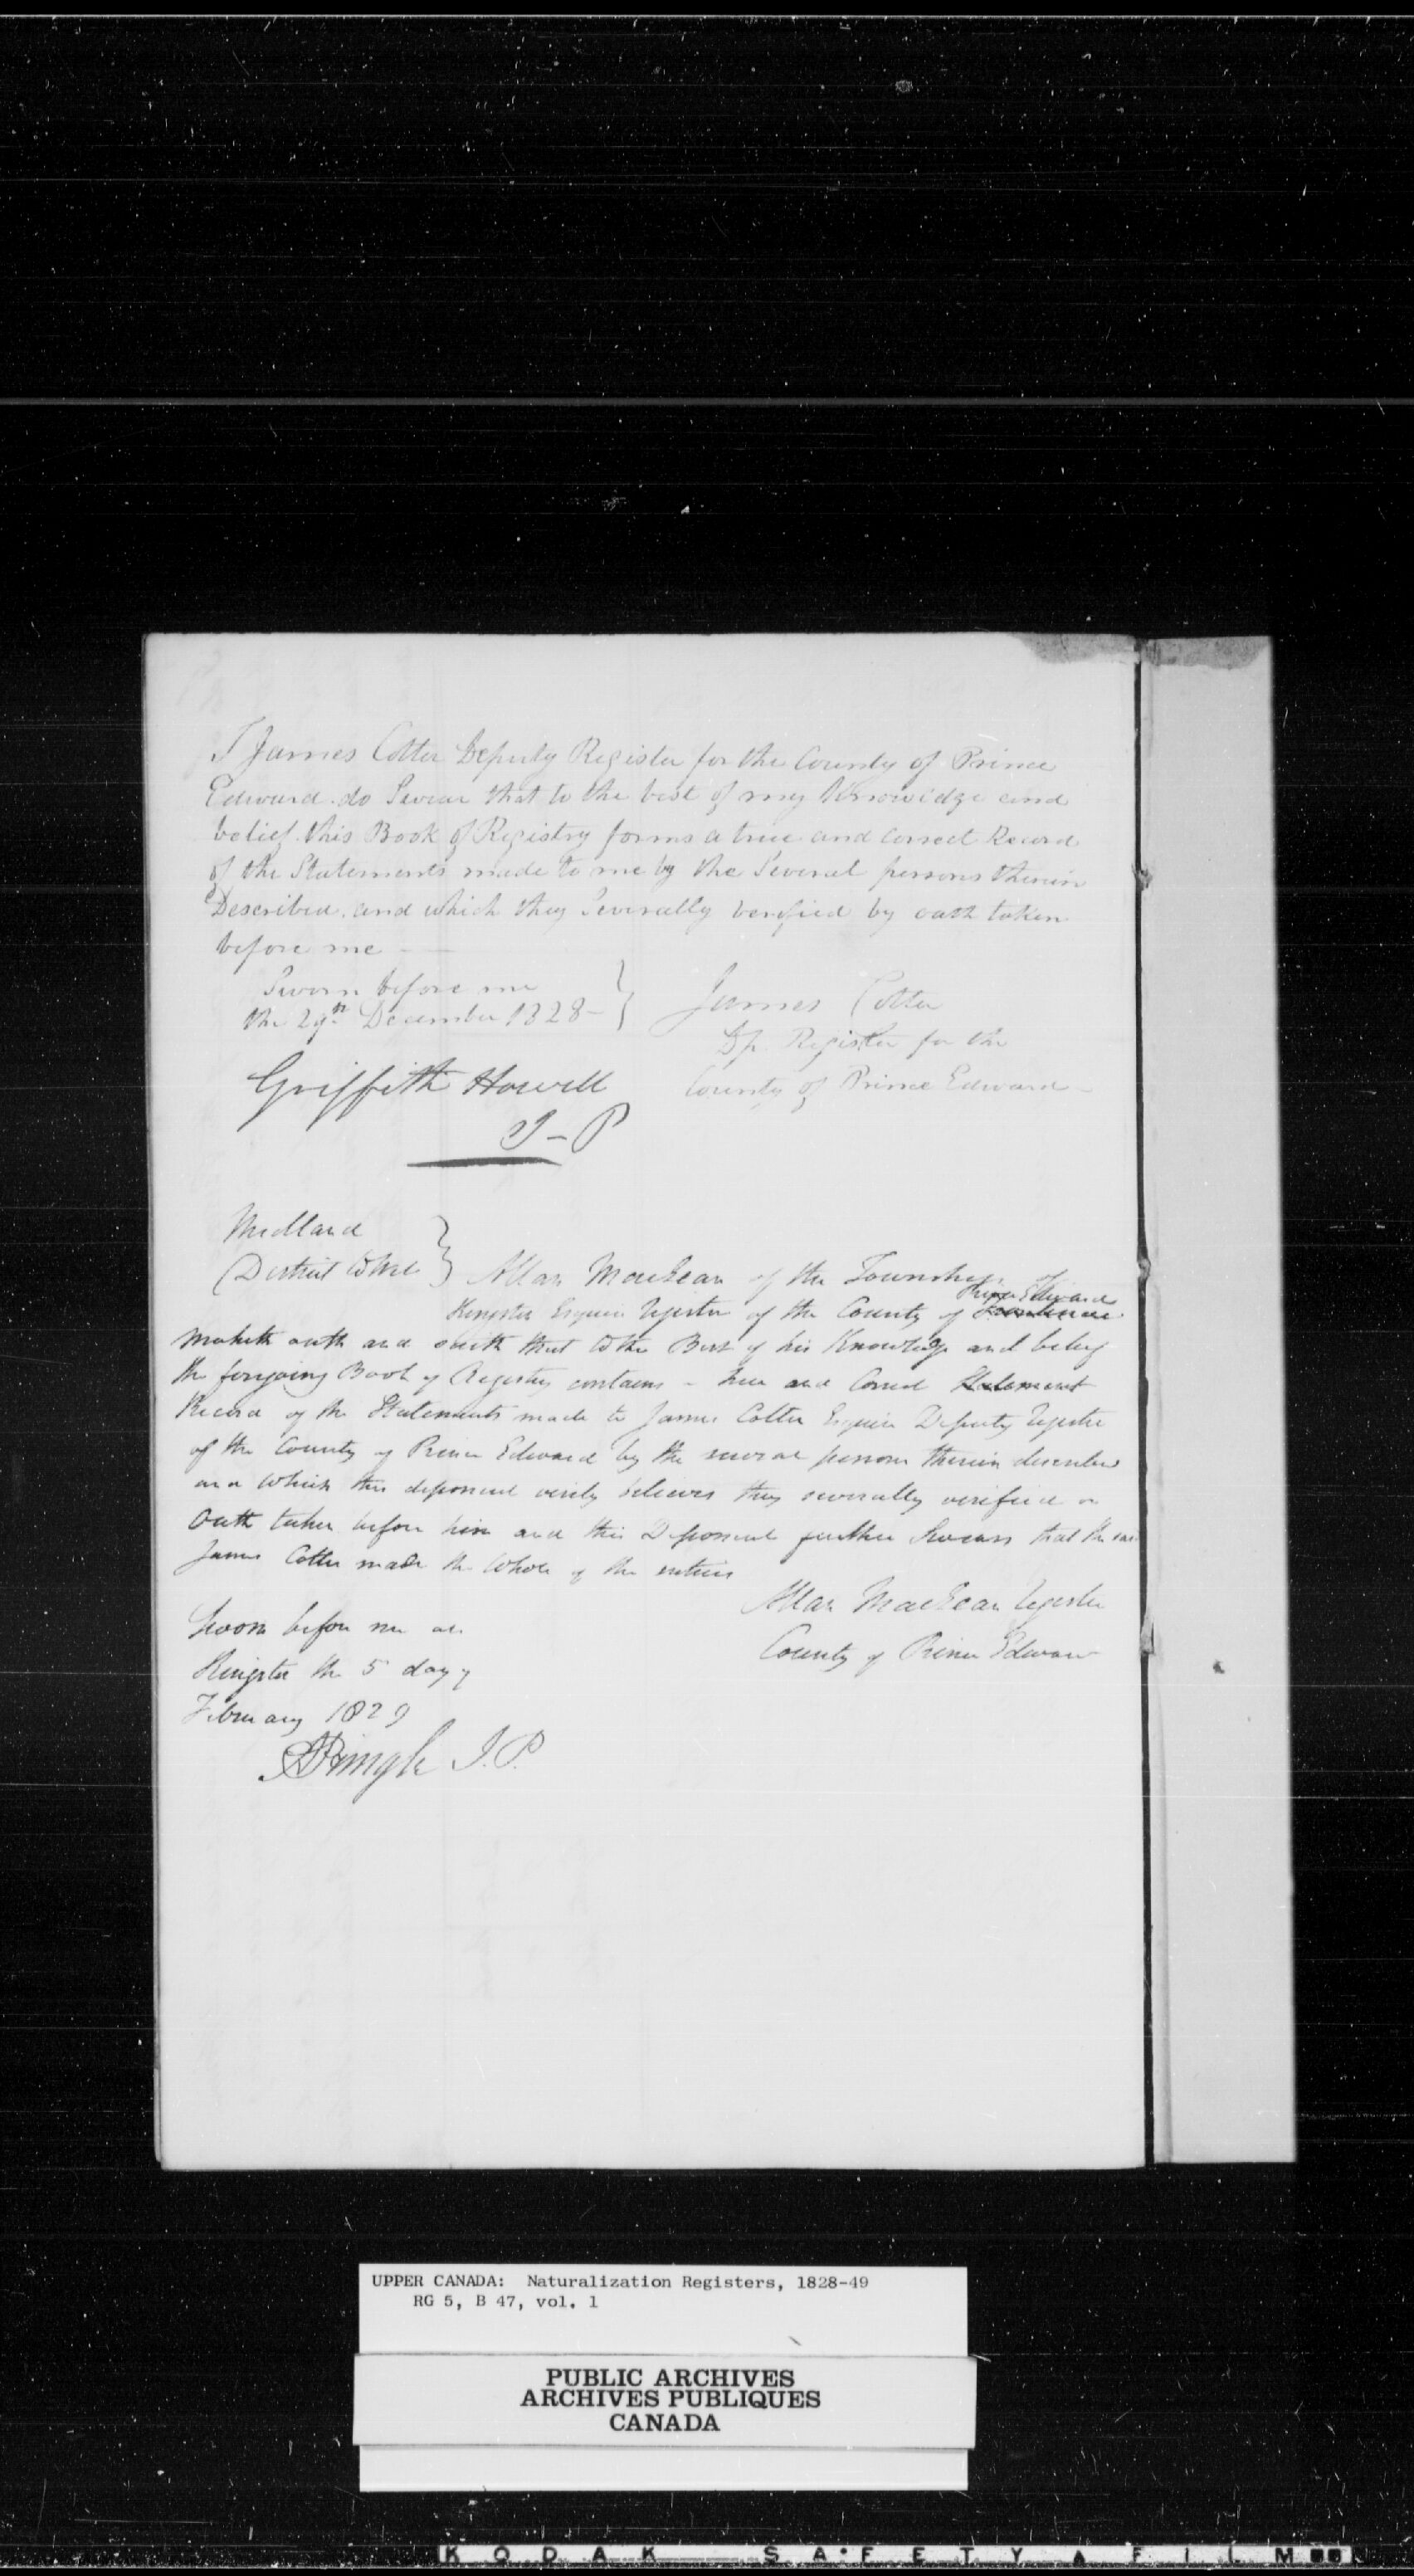 I James Cotter Deputy Register for the County of Prince
Edward do Swear that to the best of my Knowledge and
belief this Book of Registry forms a true and correct Record
of the Statements made to me by the Several persons therein
Described and which they Severally verified by oath taken
before me
Sworn before me
the 29th December 1828
James Cotter
Dp. Register for the
County of Prince Edward
Griffith Howell
J-P
Midland
District to Wit
Allan MacLean of the Township of
Kingston Esquire Register of the County of Prince Edward
maketh oath and saith that to the Best of his Knowledge and belief
the foregoing Book of Registry contains a true and Correct Statement
Record of the Statements made to James Cotter Esquire Deputy Register
of the County of Prince Edward by the several persons therein described
and which this deponent verily believes they severally verified on
Oath taken before him and this Deponent further Swears that the said
James Cotter made the Whole of the entries
Allan MacLean Register
County of Prince Edward
Sworn before me at
Kingston the 5 day of
February 1829
APringle J.P.
UPPER CANADA: Naturalization Registers, 1828-49
RG 5, B 47, vol. 1
PUBLIC ARCHIVES
ARCHIVES PUBLIQUES
CANADA
KODAK SAFETY FILM